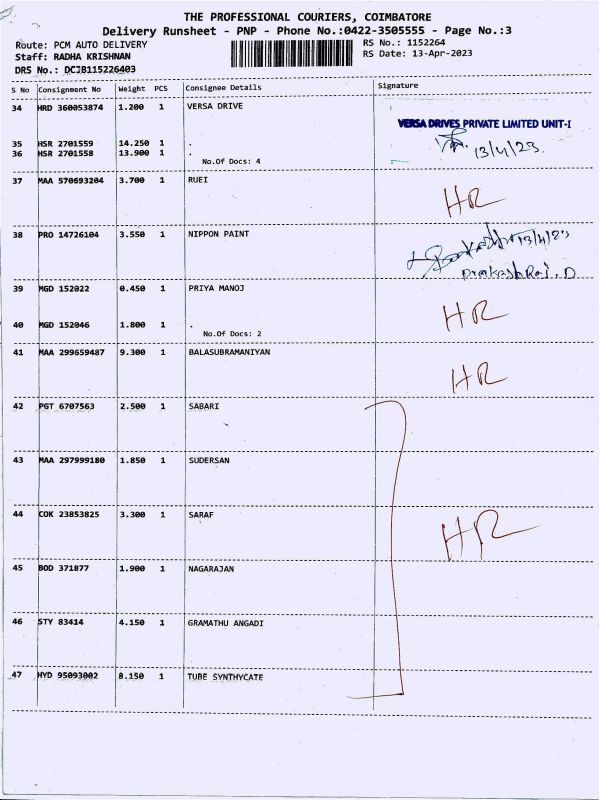 THE PROFESSIONAL COURIERS, COIMBATORE
Delivery Runsheet - PNP - Phone No.:0422-3505555 - Page No.:3
Route: PCM AUTO DELIVERY
RS No.: 1152264
Staff: RADHA KRISHNAN
RS Date: 13-Apr-2023
DRS No.: DCJB115226403
S No Consignment No Weight PCS Consignee Details Signature
34 HRD 360053874 1.200 1 VERSA DRIVE
VERSA DRIVES PRIVATE LIMITED UNIT-I
35 HSR 2701559 14.250 1 .
13/4/23
36 HSR 2701558 13.900 1 .
No.Of Docs: 4
37 MAA 570693204 3.700 1 RUEI
HR
38 PRO 14726104 3.550 1 NIPPON PAINT
13/4/23
Prakash Raj. D
39 MGD 152022 0.450 1 PRIYA MANOJ
HR
40 MGD 152046 1.800 1 .
No.Of Docs: 2
41 MAA 299659487 9.300 1 BALASUBRAMANIYAN
HR
42 PGT 6707563 2.500 1 SABARI
43 MAA 297999180 1.850 1 SUDERSAN
44 COK 23853825 3.300 1 SARAF
HR
45 BOD 371877 1.900 1 NAGARAJAN
46 STY 83414 4.150 1 GRAMATHU ANGADI
47 HYD 95093002 8.150 1 TUBE SYNTHYCATE